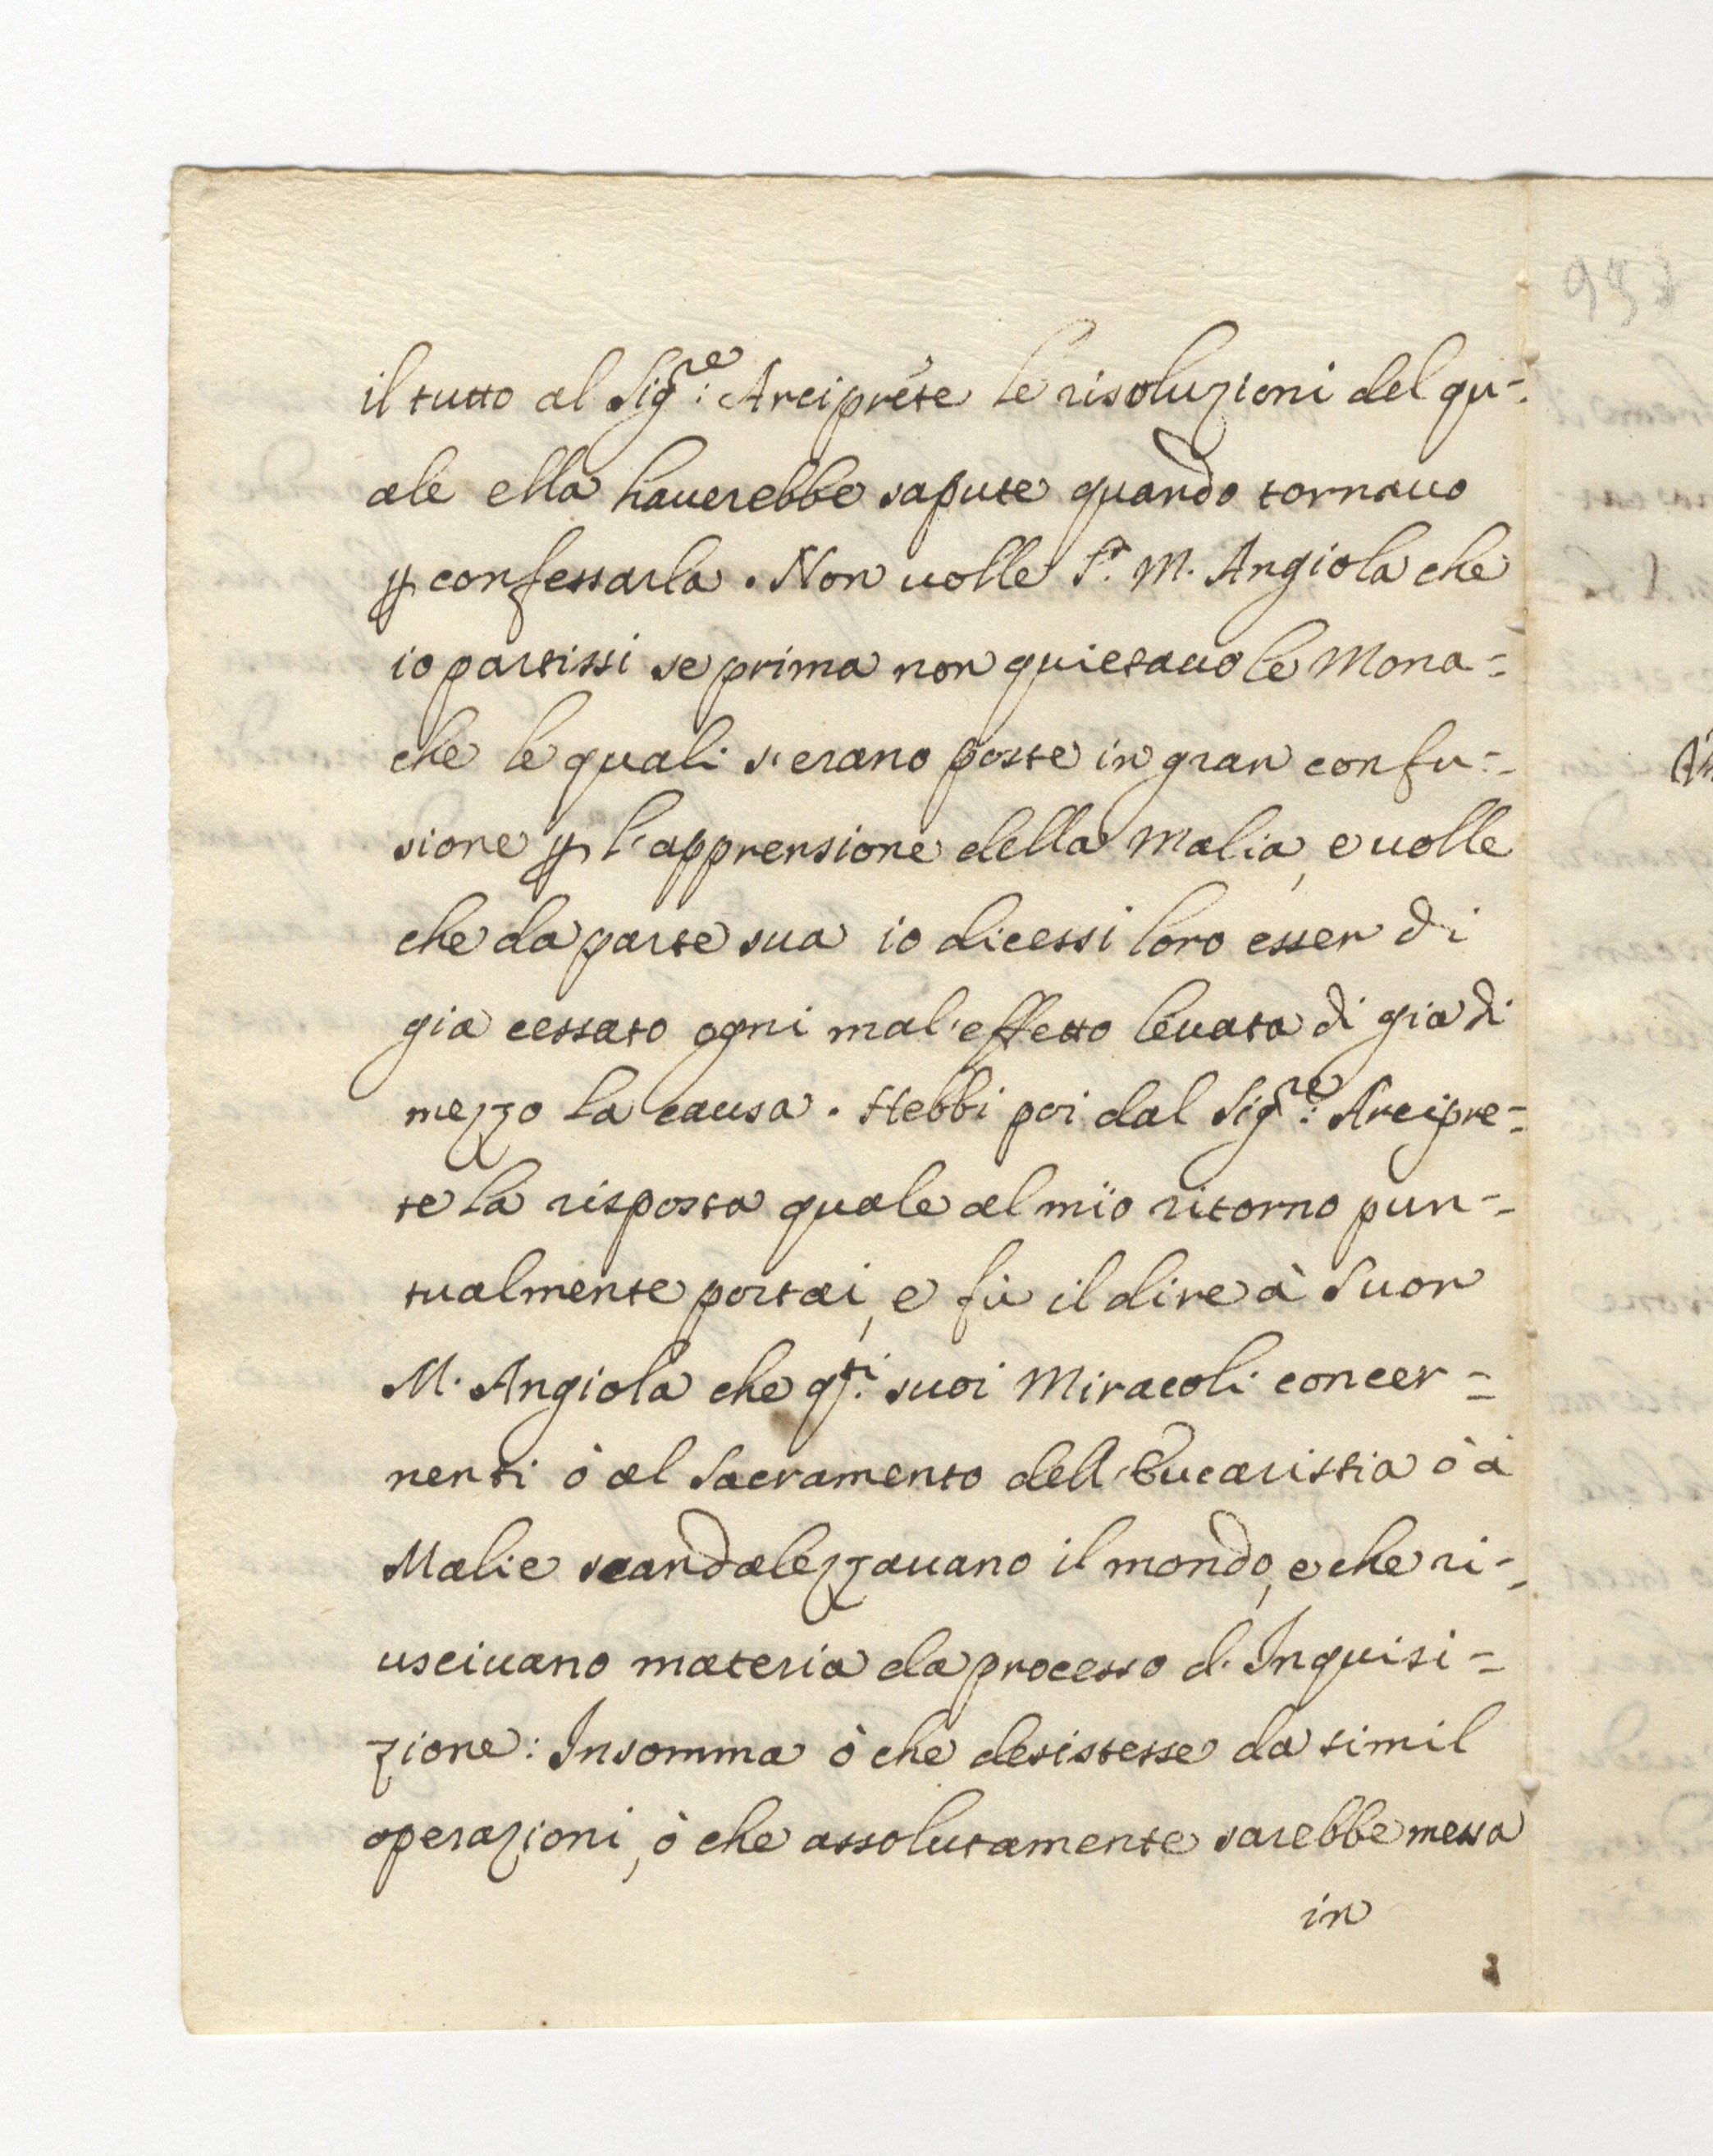 il tutto al Sig.re Arciprete le risoluzioni del qu=
ale ella hauerebbe sapute quando tornauo
ꝑ confessarla. Non uolle S.r M. Angiola che
io partissi se prima non quietauo le Mona=
che le quali s'erano poste in gran confu=
sione ꝑ l'apprensione della Malia, e uolle
che da parte sua io dicessi loro esser di
gia cessato ogni mal'effetto leuata di gia di
mezzo la causa. Hebbi poi dal Sig.re Arcipre=
te la risposta quale al mio ritorno pun=
tualmente portai, e fù il dire à Suor
M. Angiola che q.sti suoi Miracoli concer=
nenti ò al Sacramento dell'Eucaristia ò à
Malie scandalezzauano il mondo, e che ri=
usciuano materia da processo d'Inquisi=
zione: Insomma ò che desistesse da simil
operazioni, ò che assolutamente sarebbe messa
in